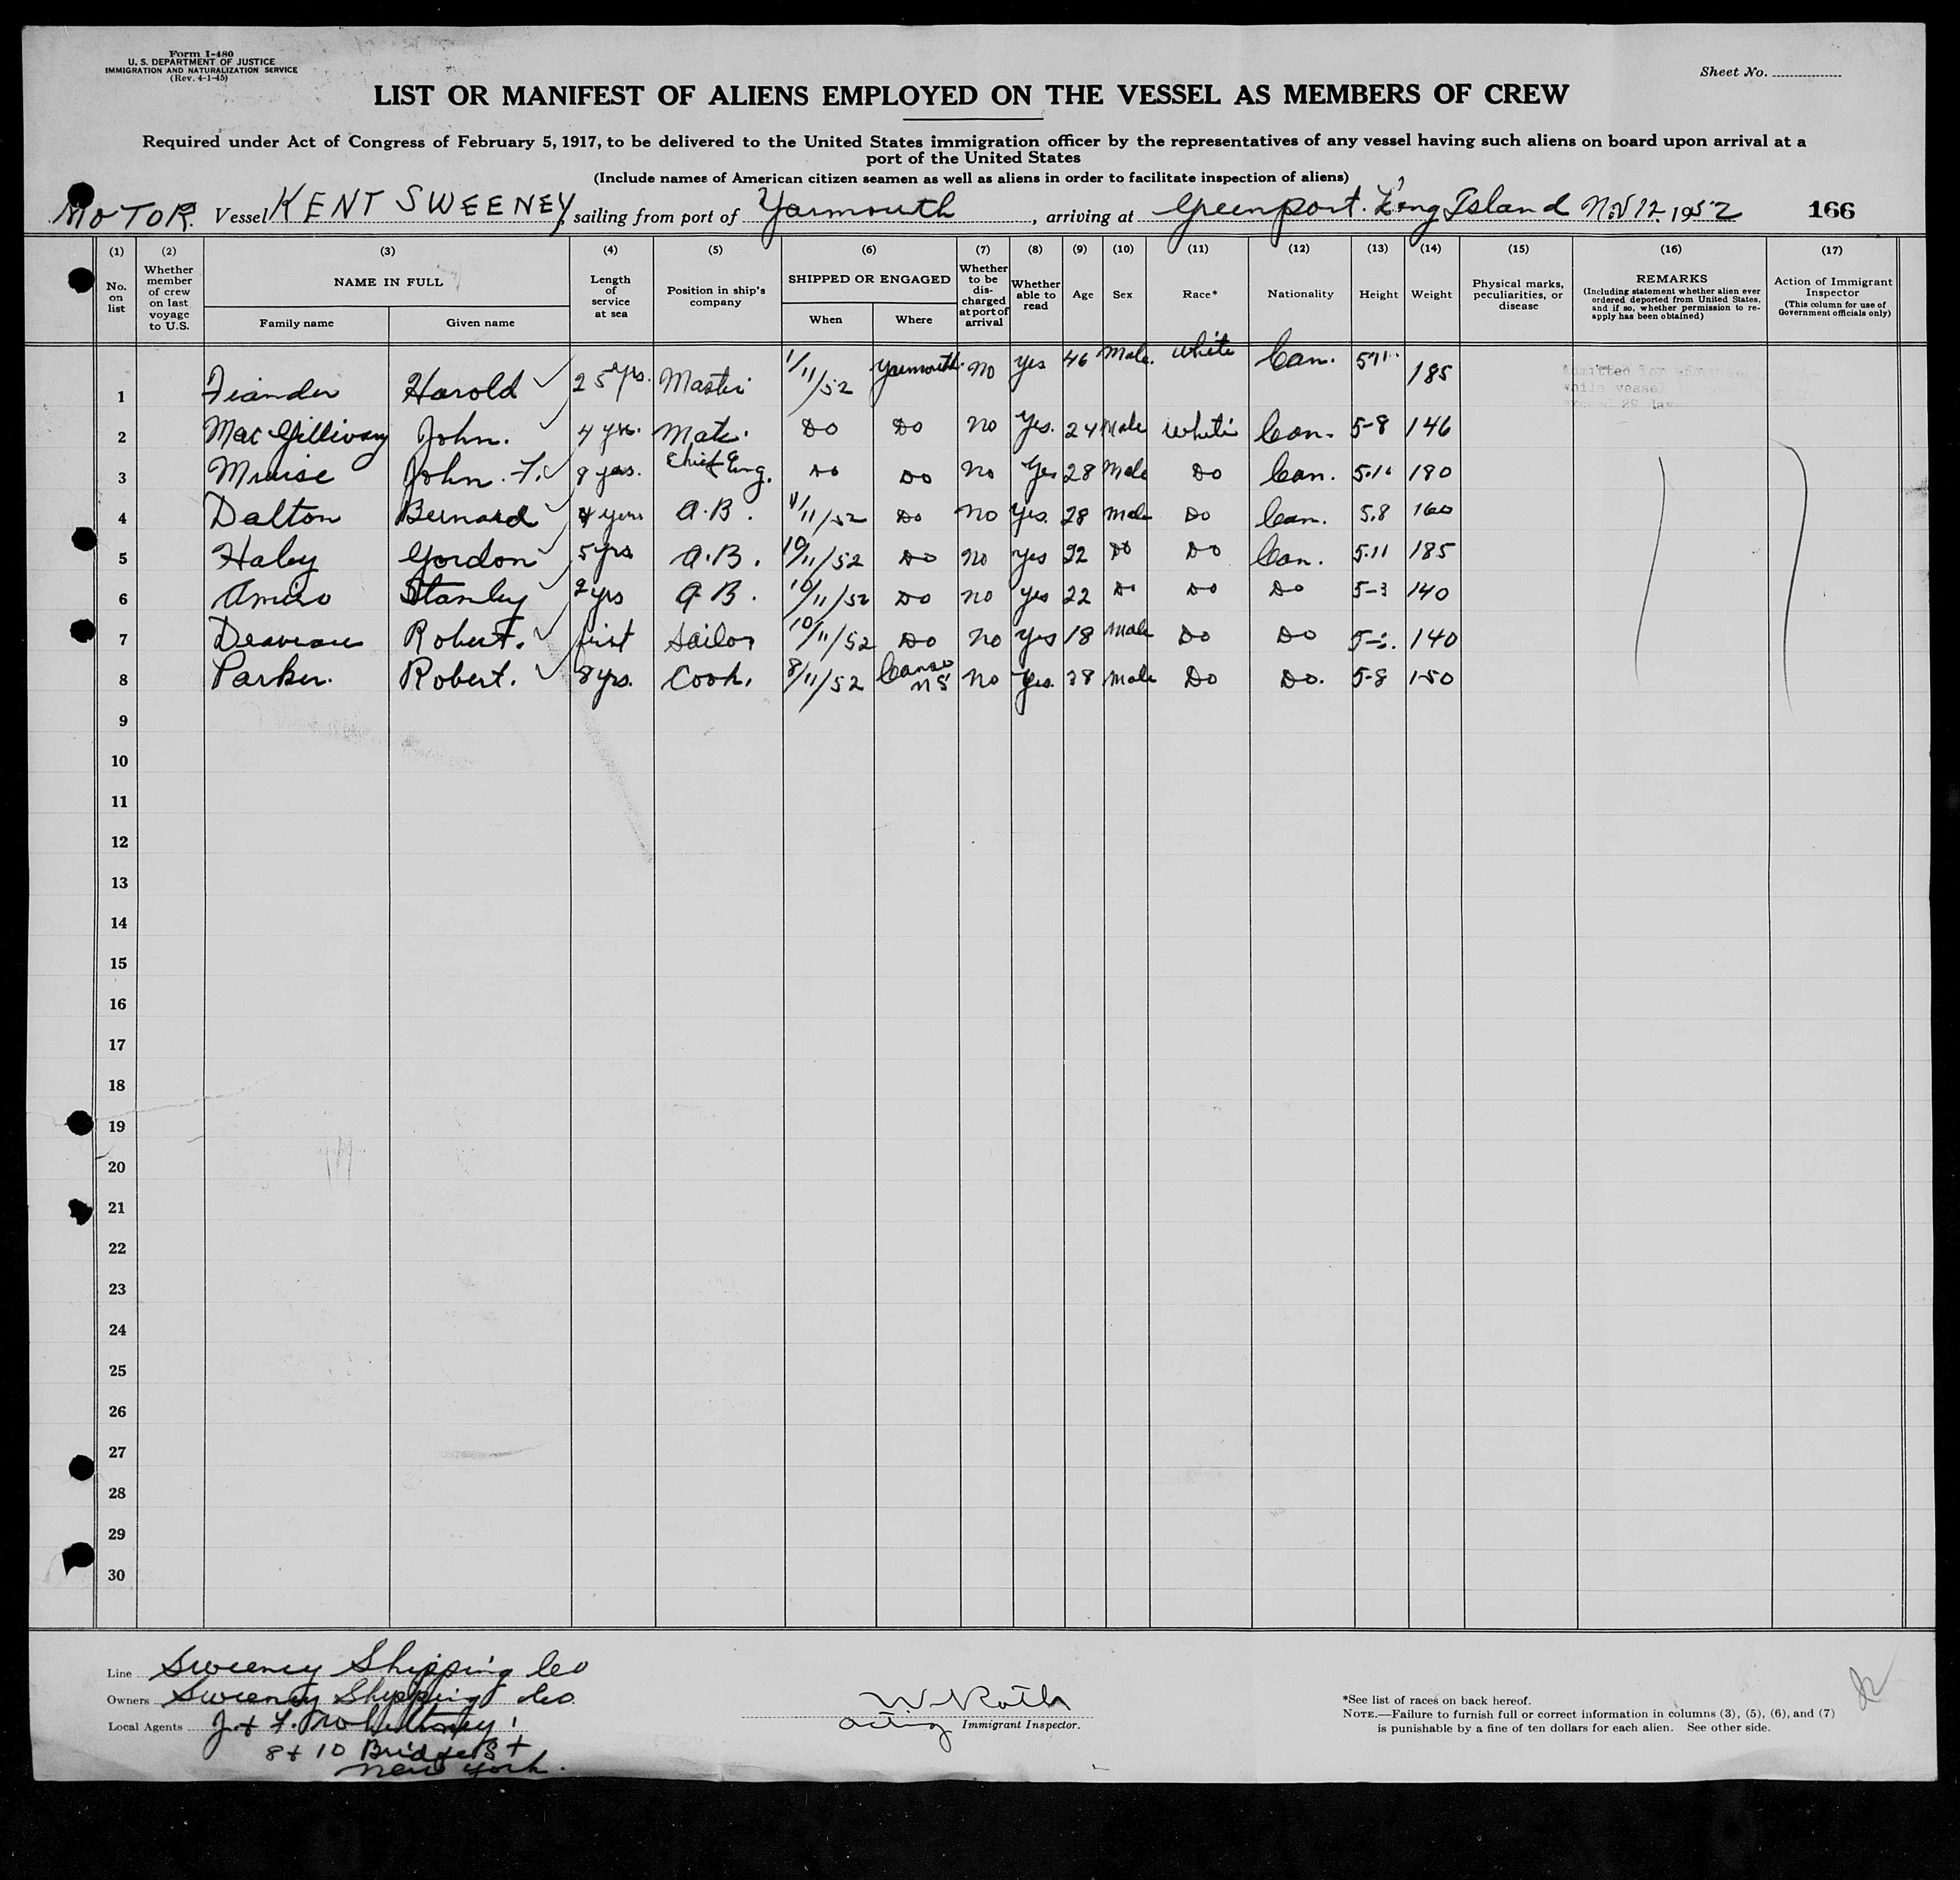 Form I-480
U. S. DEPARTMENT OF JUSTICE
IMMIGRATION AND NATURALIZATION SERVICE
(Rev. 4-1-45)
Sheet No.
LIST OR MANIFEST OF ALIENS EMPLOYED ON THE VESSEL AS MEMBERS OF CREW
Required under Act of Congress of February 5, 1917, to be delivered to the United States immigration officer by the representatives of any vessel having such aliens on board upon arrival at a
port of the United States
(Include names of American citizen seamen as well as aliens in order to facilitate inspection of aliens)
MOTOR. Vessel KENT SWEENEY, sailing from port of Yarmouth, arriving at Greenport. Long Island Nov 12, 1952 166
(1) (2) (3) (4) (5) (6) (7) (8) (9) (10) (11) (12) (13) (14) (15) (16) (17)
No. on list
Whether member of crew on last voyage to U.S.
NAME IN FULL
Family name
Given name
Length of service at sea
Position in ship's company
SHIPPED OR ENGAGED
When
Where
Whether to be discharged at port of arrival
Whether able to read
Age
Sex
Race*
Nationality
Height
Weight
Physical marks, peculiarities, or disease
REMARKS
(Including statement whether alien ever ordered deported from United States, and if so, whether permission to re-apply has been obtained)
Action of Immigrant Inspector
(This column for use of Government officials only)
1 Fiander Harold 25 yrs. Master 1/11/52 Yarmouth. No Yes 46 Male. White Can. 5-11 185
2 MacGillivary John. 4 yrs. Mate. Do Do No Yes. 24 Male White Can. 5-8 146
3 Muise John. F. 8 yrs. Chief Eng. Do Do No Yes 28 Male Do Can. 5.10 180
4 Dalton Bernard 4 years A.B. 4/11/52 Do No Yes. 28 Male Do Can. 5.8 160
5 Haley Gordon 5 yrs A.B. 10/11/52 Do No Yes 22 Do Do Can. 5.11 185
6 Amiro Stanley 2 yrs A.B. 10/11/52 Do No Yes 22 Do Do Do 5-3 140
7 Deveau Robert. first Sailor 10/11/52 Do No Yes 18 Male Do Do 140
8 Parker. Robert. 8 yrs. Cook. 8/11/52 Canso NS No Yes. 28 Male Do Do. 5-8 150
9
10
11
12
13
14
15
16
17
18
19
20
21
22
23
24
25
26
27
28
29
30
Line Sweeney Shipping Co
Owners Sweeney Shipping Co.
Local Agents J + F.
8 + 10 Bridge St
New York.
W Roth
Acting Immigrant Inspector.
*See list of races on back hereof.
NOTE.—Failure to furnish full or correct information in columns (3), (5), (6), and (7)
is punishable by a fine of ten dollars for each alien. See other side.